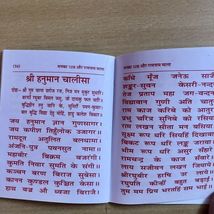 श्री हनुमान चालीसा
दोहा- श्री गुरु चरन सरोज रज, निज मन मुकुर सुधारि।
बरनउँ रघुबर बिमल जसु, जो दायक फल चारि॥
बुद्धिहीन तनु जानि के, सुमिरौं पवन-कुमार।
जय हनुमान ज्ञान गुणसागर।
जय कपीश तिहुँलोक उजागर॥
रामदूत अतुलित बलधामा।
अंजनि-पुत्र पवनसुत नामा॥
महाबीर विक्रम बजरंगी।
कुमति निवार सुमति के संगी॥
कंचन बरण बिराज सुबेसा।
कानन कुण्डल कुंचित केशा॥
हाथ बज्र औ ध्वजा बिराजै।
काँधे मूँज जनेऊ
शंकर-सुवन केसरी-नन्दन
तेज प्रताप महा जग-वन्दन
विद्यावान गुणी अति चातुर
राम काज करिबे को आतुर
प्रभु चरित्र सुनिबे को रसिया
राम लखन सीता मन बसिया
सूक्ष्म रूप धरि सियहिं
विकट रूप धरि लंक
भीम रूप धरि असुर
रामचन्द्र के काज
लाय सजीवन लखन
श्री रघुबीर हरषि उर
रघुपति कीन्हीं बहुत
तुम मम प्रिय भरतहि सम भाई